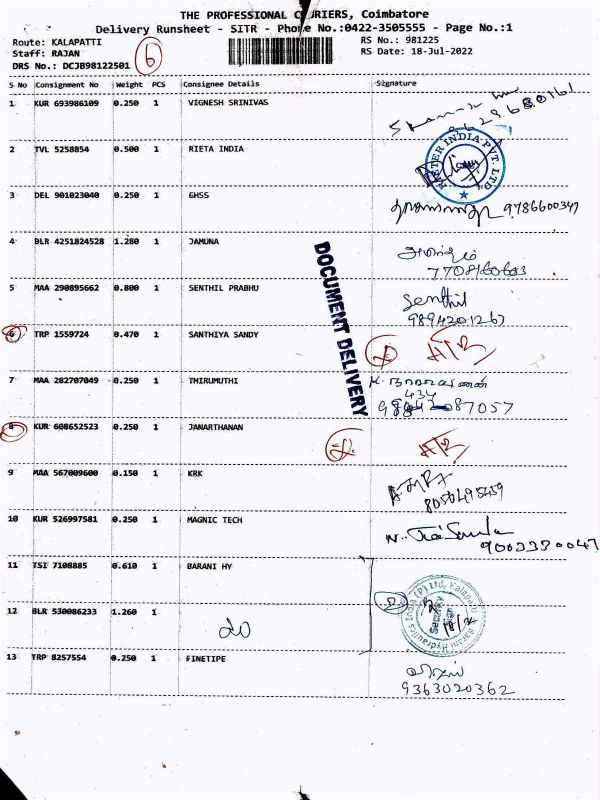 THE PROFESSIONAL COURIERS, Coimbatore
Delivery Runsheet - SITR - Phone No.:0422-3505555 - Page No.:1
Route: KALAPATTI
Staff: RAJAN
DRS No.: DCJB98122501
6
RS No.: 981225
RS Date: 18-Jul-2022
S No Consignment No Weight PCS Consignee Details Signature
1 KUR 693986109 0.250 1 VIGNESH SRINIVAS
2 TVL 5258854 0.500 1 RIETA INDIA
3 DEL 901023040 0.250 1 GHSS 9786600347
4 BLR 4251824528 1.280 1 JAMUNA
5 MAA 290895662 0.800 1 SENTHIL PRABHU Senthil
9894201267
DOCUMENT DELIVERY
6 TRP 1559724 0.470 1 SANTHIYA SANDY
7 MAA 282707049 0.250 1 THIRUMUTHI
8 KUR 608652523 0.250 1 JANARTHANAN
9 MAA 567009600 0.150 1 KRK
8050495459
10 KUR 526997581 0.250 1 MAGNIC TECH
9003330047
11 TSI 7108885 0.610 1 BARANI HY
12 BLR 530086233 1.260 1 do
Barani Hydraulics India (P) Ltd, Kalapatti
13 TRP 8257554 0.250 1 FINETIPE
9363020362